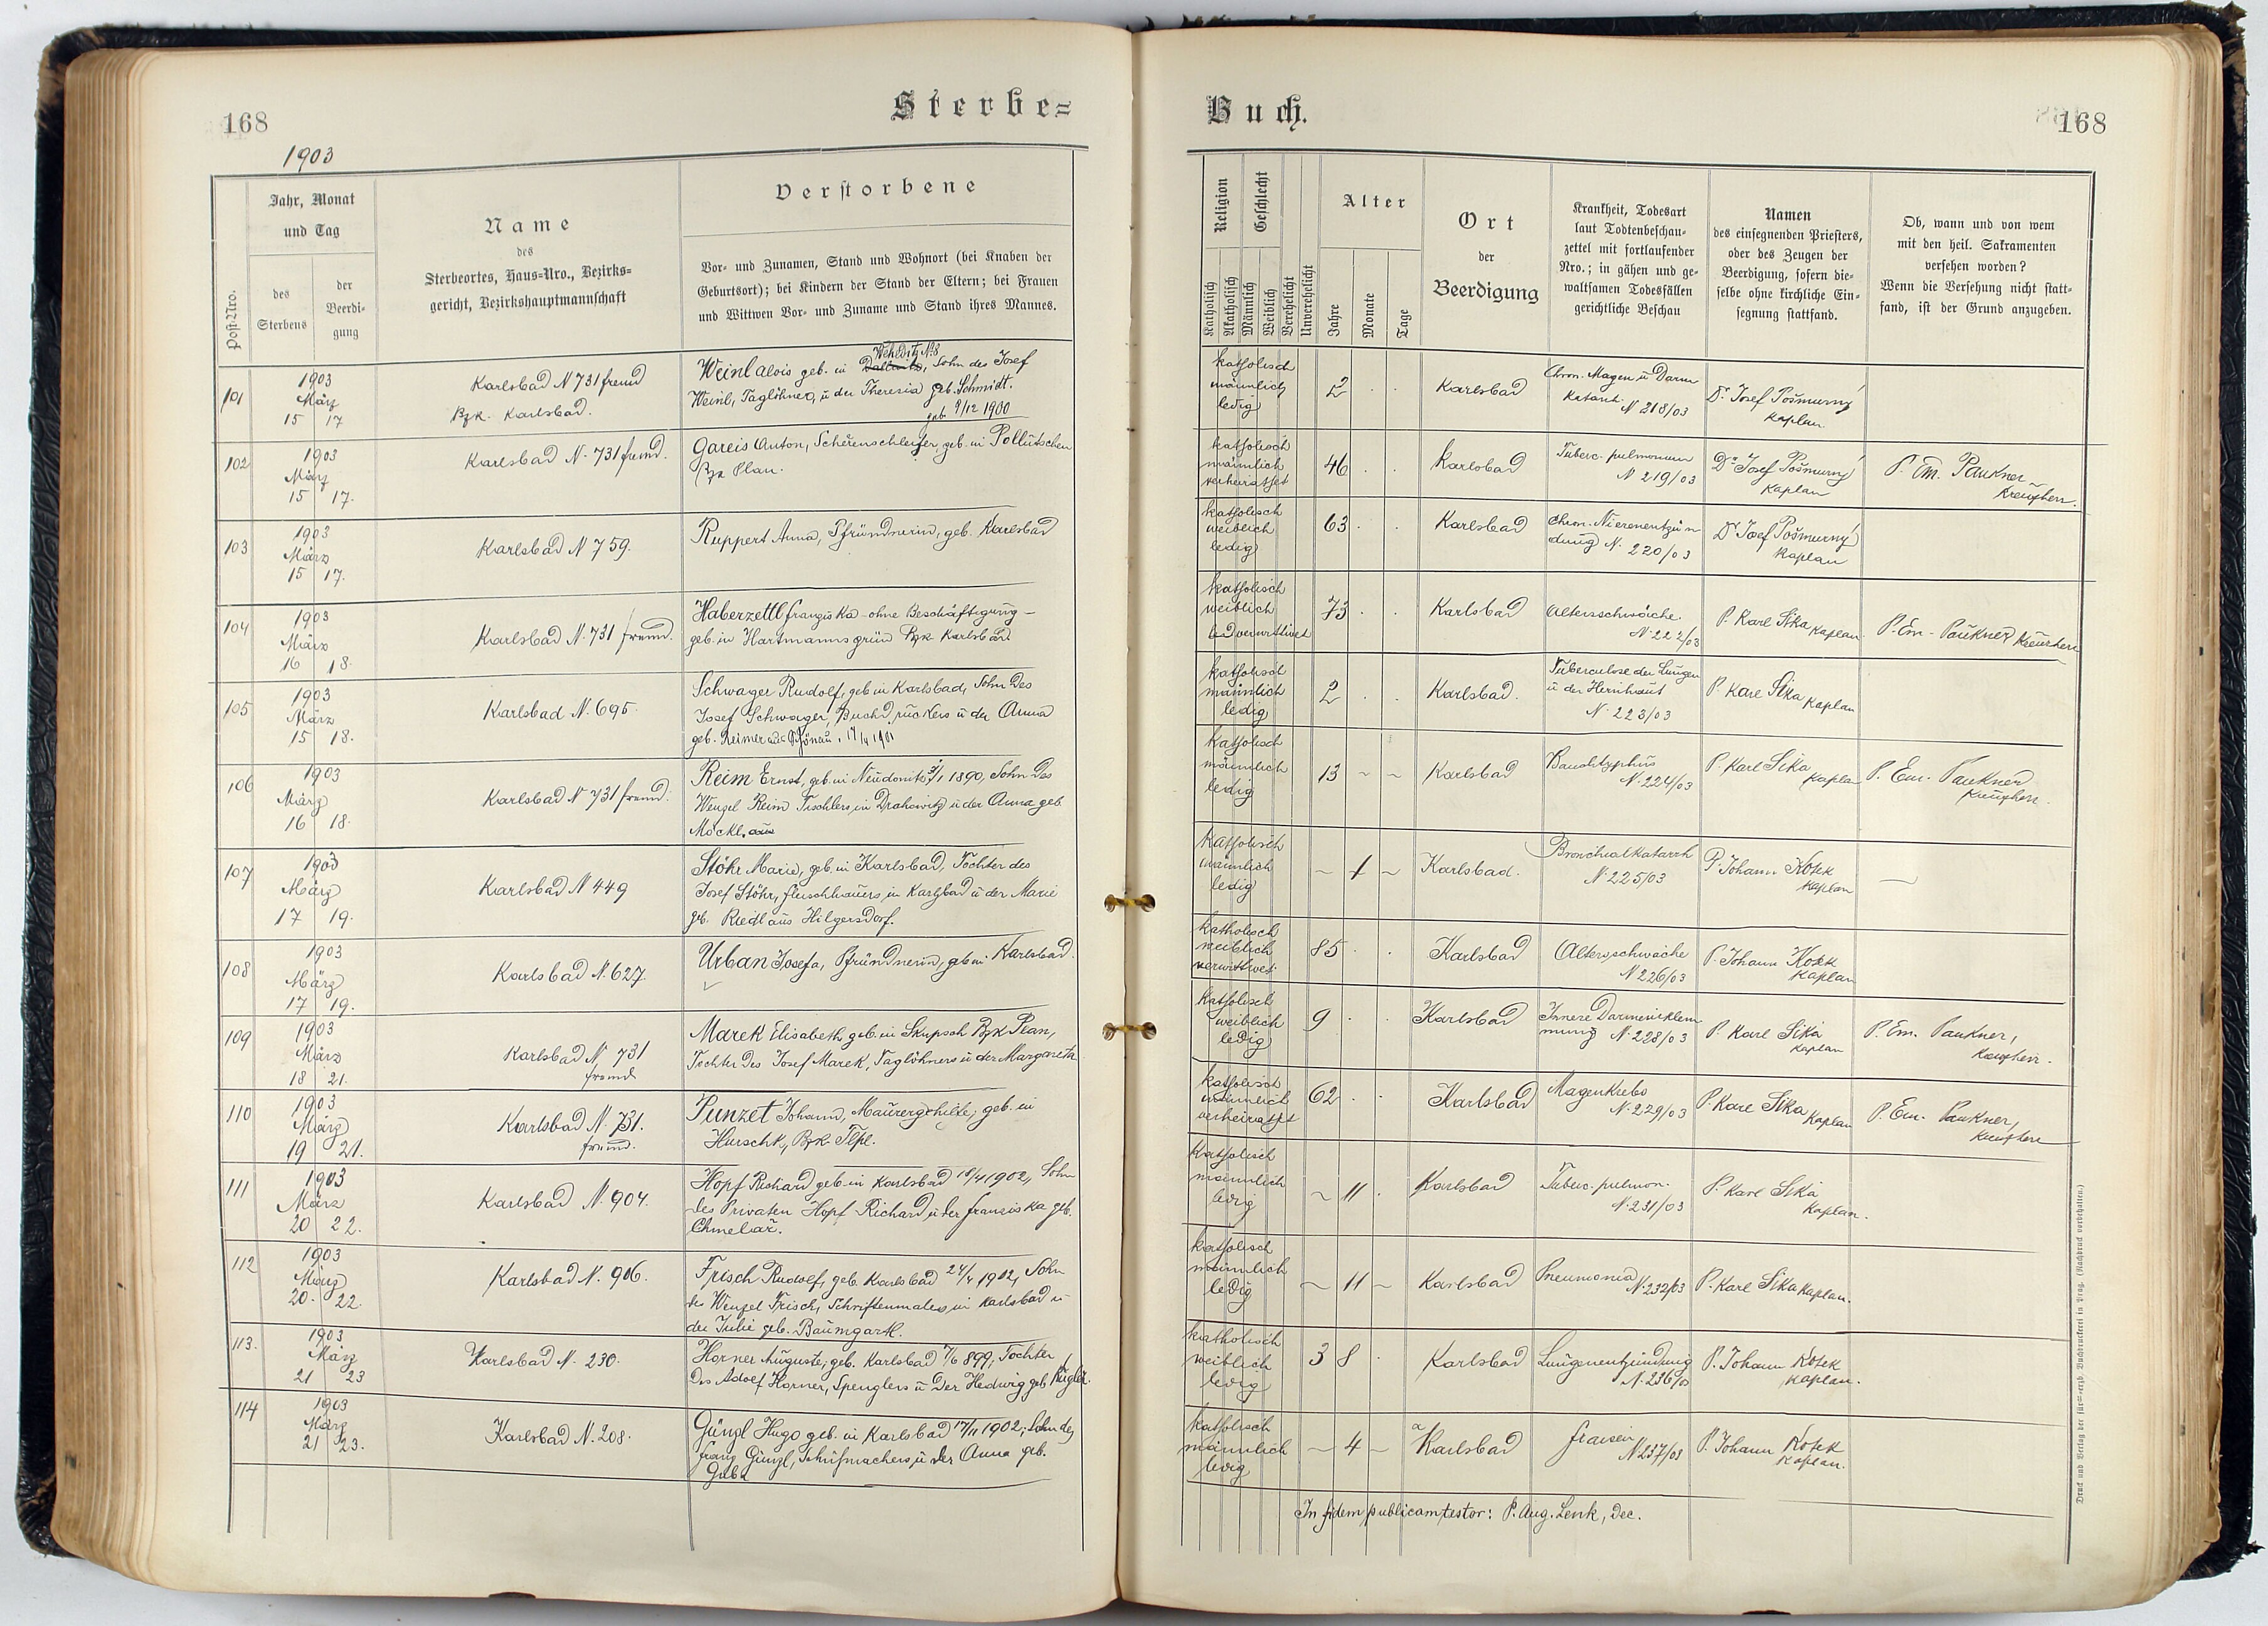 168
Sterbe=
1903
Post-Nro.
Jahr, Monat
und Tag
des
Sterbens
der
Beerdi-
gung
Name
des
Sterbeortes, Haus-Nro., Bezirks-
gericht, Bezirkshauptmannschaft
Verstorbene
Vor- und Zunamen, Stand und Wohnort (bei Knaben der
Geburtsort); bei Kindern der Stand der Eltern; bei Frauen
und Wittwen Vor- und Zuname und Stand ihres Mannes.
101
1903
März
15 17
Karlsbad N 731 fremd
Bzk. Karlsbad.
Weheditz N 8
Weinl Alois geb. in Dallwitz, Sohn des Josef
Weinl, Taglöhner, u der Theresia geb. Schmidt.
geb 9/12 1900
102
1903
März
15 17.
Karlsbad N. 731 fremd.
Gareis Anton, Scherenschleifer, geb. in Pollutschen
Bzk Plan.
103
1903
März
15 17.
Karlsbad N 759.
Ruppert Anna, Pfründnerin, geb. Karlsbad
104
1903
März
16 18.
Karlsbad N. 731 fremd.
Haberzettl Franziska - ohne Beschäftigung -
geb. in Hartmannsgrün Bzk Karlsbad
105
1903
März
15 18.
Karlsbad N. 695.
Schwager Rudolf, geb in Karlsbad, Sohn des
Josef Schwager, Buchdruckers u der Anna
geb. Reimer aus Schönau, 17/4 1901
106
1903
März
16 18.
Karlsbad N 731 fremd.
Reim Ernst, geb. in Neudonitz 3/1 1890, Sohn des
Wenzel Reim Tischlers, in Drahowitz u der Anna geb
Möckl. aus
107
1903
März
17 19.
Karlsbad N 449
Stöhr Marie, geb. in Karlsbad, Tochter des
Josef Stöhr, Fleischhauers, in Karlsbad u der Marie
geb. Riedl aus Hilgersdorf.
108
1903
März
17 19.
Karlsbad N. 627.
Urban Josefa, Pfründnerin, geb in Karlsbad.
109
1903
März
18 21.
Karlsbad N 731
fremd
Marek Elisabeth, geb. in Skupsch Bzk Plan,
Tochter des Josef Marek, Taglöhners u der Margareta
110
1903
März
19 21.
Karlsbad N. 731.
fremd.
Punzet Johann, Maurergehilfe, geb. in
Hurschk, Bzk. Tepl.
111
1903
März
20 22.
Karlsbad N. 904.
Hopf Richard geb in Karlsbad 18/4 1902, Sohn
des Privaten Hopf Richard, u der Franziska geb.
Chmelař.
112
1903
März
20. 22.
Karlsbad N. 906.
Frisch Rudolf, geb. Karlsbad 24/4 1902, Sohn
des Wenzel Frisch, Schriftenmalers in Karlsbad u
der Julie geb. Baumgartl.
113.
1903
März
21 23
Karlsbad N. 230.
Horner Auguste, geb. Karlsbad 7/6 899, Tochter
des Adolf Horner, Spenglers u der Hedwig geb Kugler.
114
1903
März
21 23.
Karlsbad N. 208.
Günzl Hugo geb. in Karlsbad 17/11 1902; Sohn des
Franz Günzl, Schuhmachers, u der Anna geb.
Buch.
168
Religion
Geschlecht
Katholisch
Akatholisch
Männlich
Weiblich
Verehelicht
Unverehelicht
Alter
Jahre
Monate
Tage
Ort
der
Beerdigung
Krankheit, Todesart
laut Todtenbeschau-
zettel mit fortlaufender
Nro.; in gähen und ge-
waltsamen Todesfällen
gerichtliche Beschau
Namen
des einsegnenden Priesters,
oder des Zeugen der
Beerdigung, sofern die-
selbe ohne kirchliche Ein-
segnung stattfand.
Ob, wann und von wem
mit den heil. Sakramenten
versehen worden?
Wenn die Versehung nicht statt-
fand, ist der Grund anzugeben.
katholisch
männlich
ledig
2
Karlsbad
Chron. Magen u Darm
Katarrh N 218/03
Dr Josef Pošmurný
Kaplan.
katholisch
männlich
verheiratet
46
Karlsbad
Tuberc. pulmonum
N 219/03
Dr Josef Pošmurný
Kaplan
P. Em. Paukner
Kreuzherr.
katholisch
weiblich
ledig
63
Karlsbad
Chron. Nierenentzün
dung N. 220/03
Dr Josef Pošmurný
Kaplan
katholisch
weiblich
led verwittwet
73
Karlsbad
Altersschwäche
N. 222/03
P. Karl Sika Kaplan
P. Em. Paukner Kreuzherr
katholisch
männlich
ledig
2
Karlsbad.
Tuberculose der Lungen
u der Hirnhaut
N. 223/03
P. Karl Sika Kaplan
katholisch
männlich
ledig
13
Karlsbad
Bauchtyphus
N. 224/03
P. Karl Sika Kaplan
P. Em. Paukner
Kreuzherr.
katholisch
männlich
ledig
1
Karlsbad.
Bronchialkatarrh
N. 225/03
P. Johann Kotek
Kaplan
katholisch
weiblich
verwittwet
85
Karlsbad
Altersschwäche
N 226/03
P. Johann Kotek
Kaplan
katholisch
weiblich
ledig
9
Karlsbad
Innere Darmeinklem
mung N. 228/03
P. Karl Sika
Kaplan
P. Em. Paukner,
Kreuzherr.
katholisch
männlich
verheiratet
62
Karlsbad
Magenkrebs
N. 229/03
P. Karl Sika Kaplan
P. Em. Paukner,
Kreuzherr
katholisch
männlich
ledig
11
Karlsbad
Tuberc. pulmon.
N. 231/03
P. Karl Sika
Kaplan.
katholisch
männlich
ledig
11
Karlsbad
Pneumonia
N. 232/03
P. Karl Sika Kaplan.
katholisch
weiblich
ledig
3 8
Karlsbad
Lungenentzündung
N. 236/03
P. Johann Kotek
Kaplan.
katholisch
männlich
ledig
4
Karlsbad
Fraisen
N 237/03
P. Johann Kotek
Kaplan.
In fidem publicam testor: P. Aug. Lenk, Dec.
Druck und Verlag der fürst-erzb. Buchdruckerei in Prag. (Nachdruck vorbehalten.)